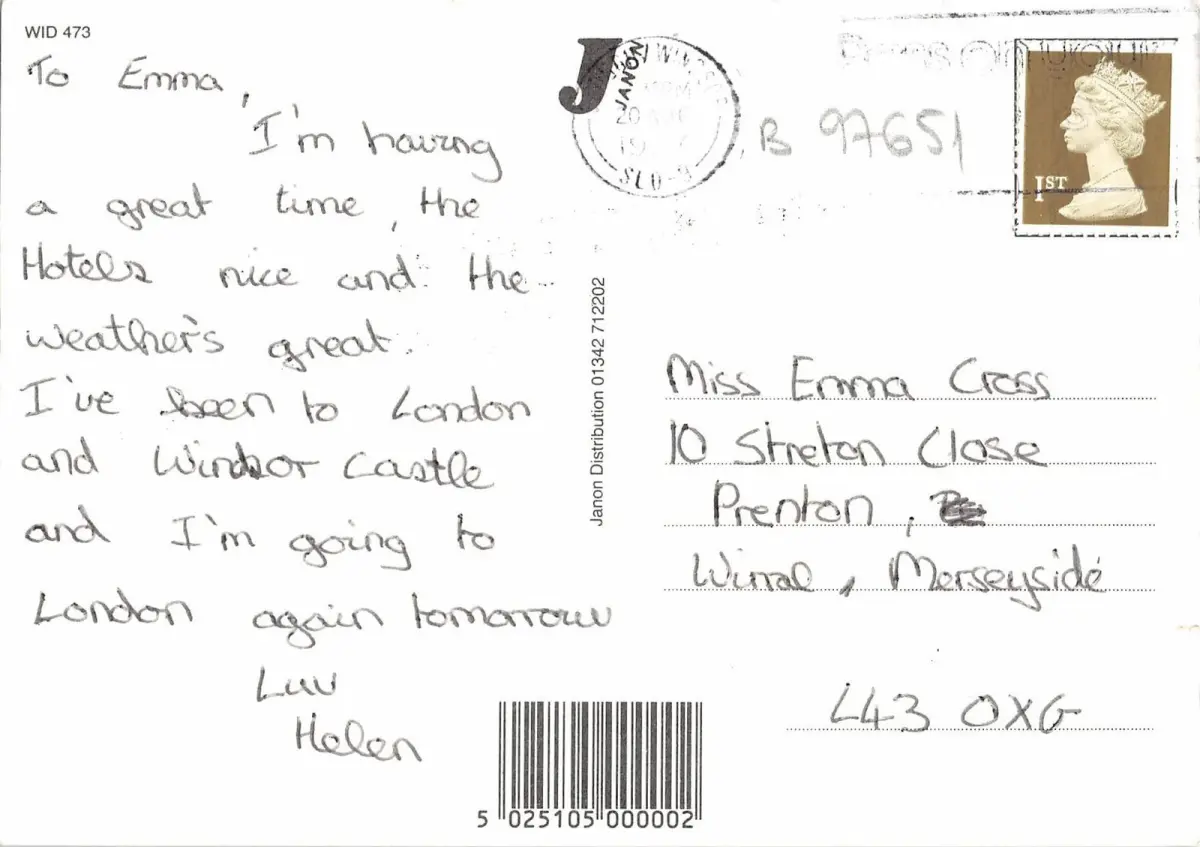 WID 473
To Emma,
I'm having
a great time, the
Hotels nice and the
weather's great.
I've been to London
and Windsor Castle
and I'm going to
London again tomorrow
Luv
Helen
J
JANON
20
19
SLO-
B 97651
1ST
Janon Distribution 01342 712202
Miss Emma Cross
10 Streton Close
Prenton,
Wirral, Merseyside
L43 OXG
5 025105 000002